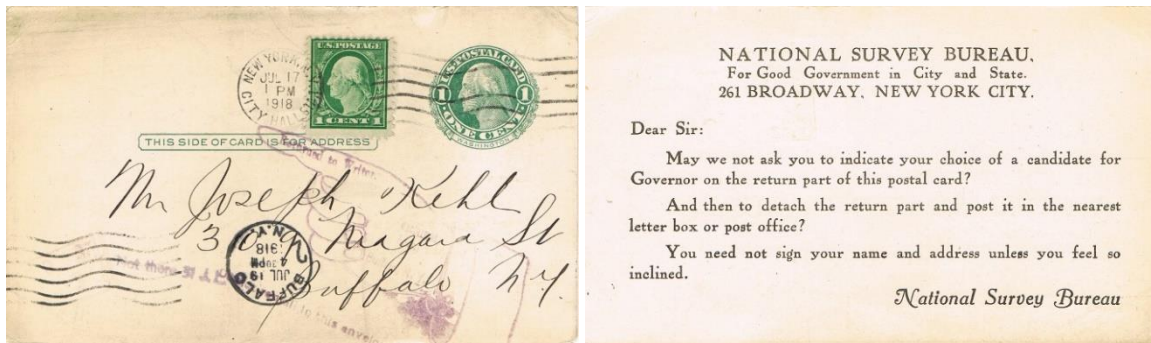 NEW YORK, N.Y.
JUL 17
1 PM
1918
CITY HALL
U.S. POSTAGE
1 CENT 1
U.S. POSTAL CARD
1 1
ONE CENT
WASHINGTON
THIS SIDE OF CARD IS FOR ADDRESS
Returned to Writer
Mr Joseph Kehl
309 Niagara St
Buffalo N.Y.
BUFFALO
JUL 19
4 30 PM
1918
N.Y.
2
to this envel
NATIONAL SURVEY BUREAU,
For Good Government in City and State.
261 BROADWAY, NEW YORK CITY.
Dear Sir:
May we not ask you to indicate your choice of a candidate for
Governor on the return part of this postal card?
And then to detach the return part and post it in the nearest
letter box or post office?
You need not sign your name and address unless you feel so
inclined.
National Survey Bureau